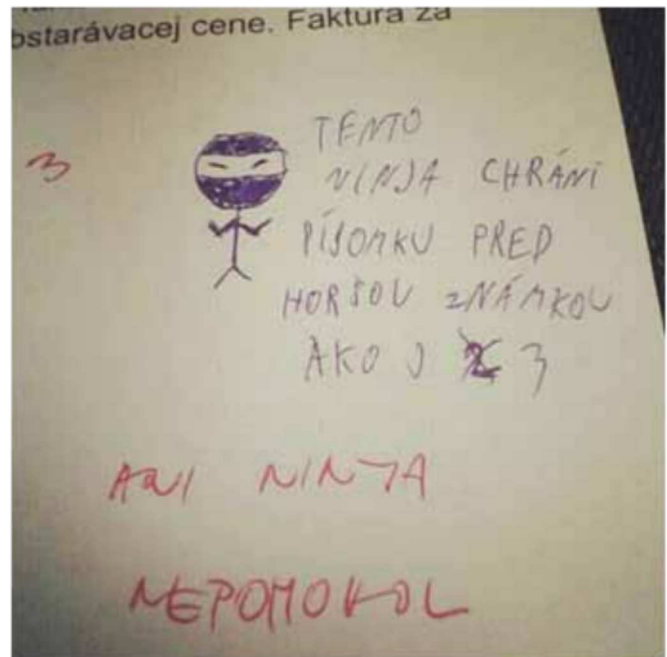 obstarávacej cene. Faktura za
3
TENTO
NINJA CHRÁNI
PÍSOMKU PRED
HORŠOU ZNÁMKOU
AKO 3
ANI NINJA
NEPOMOHOL